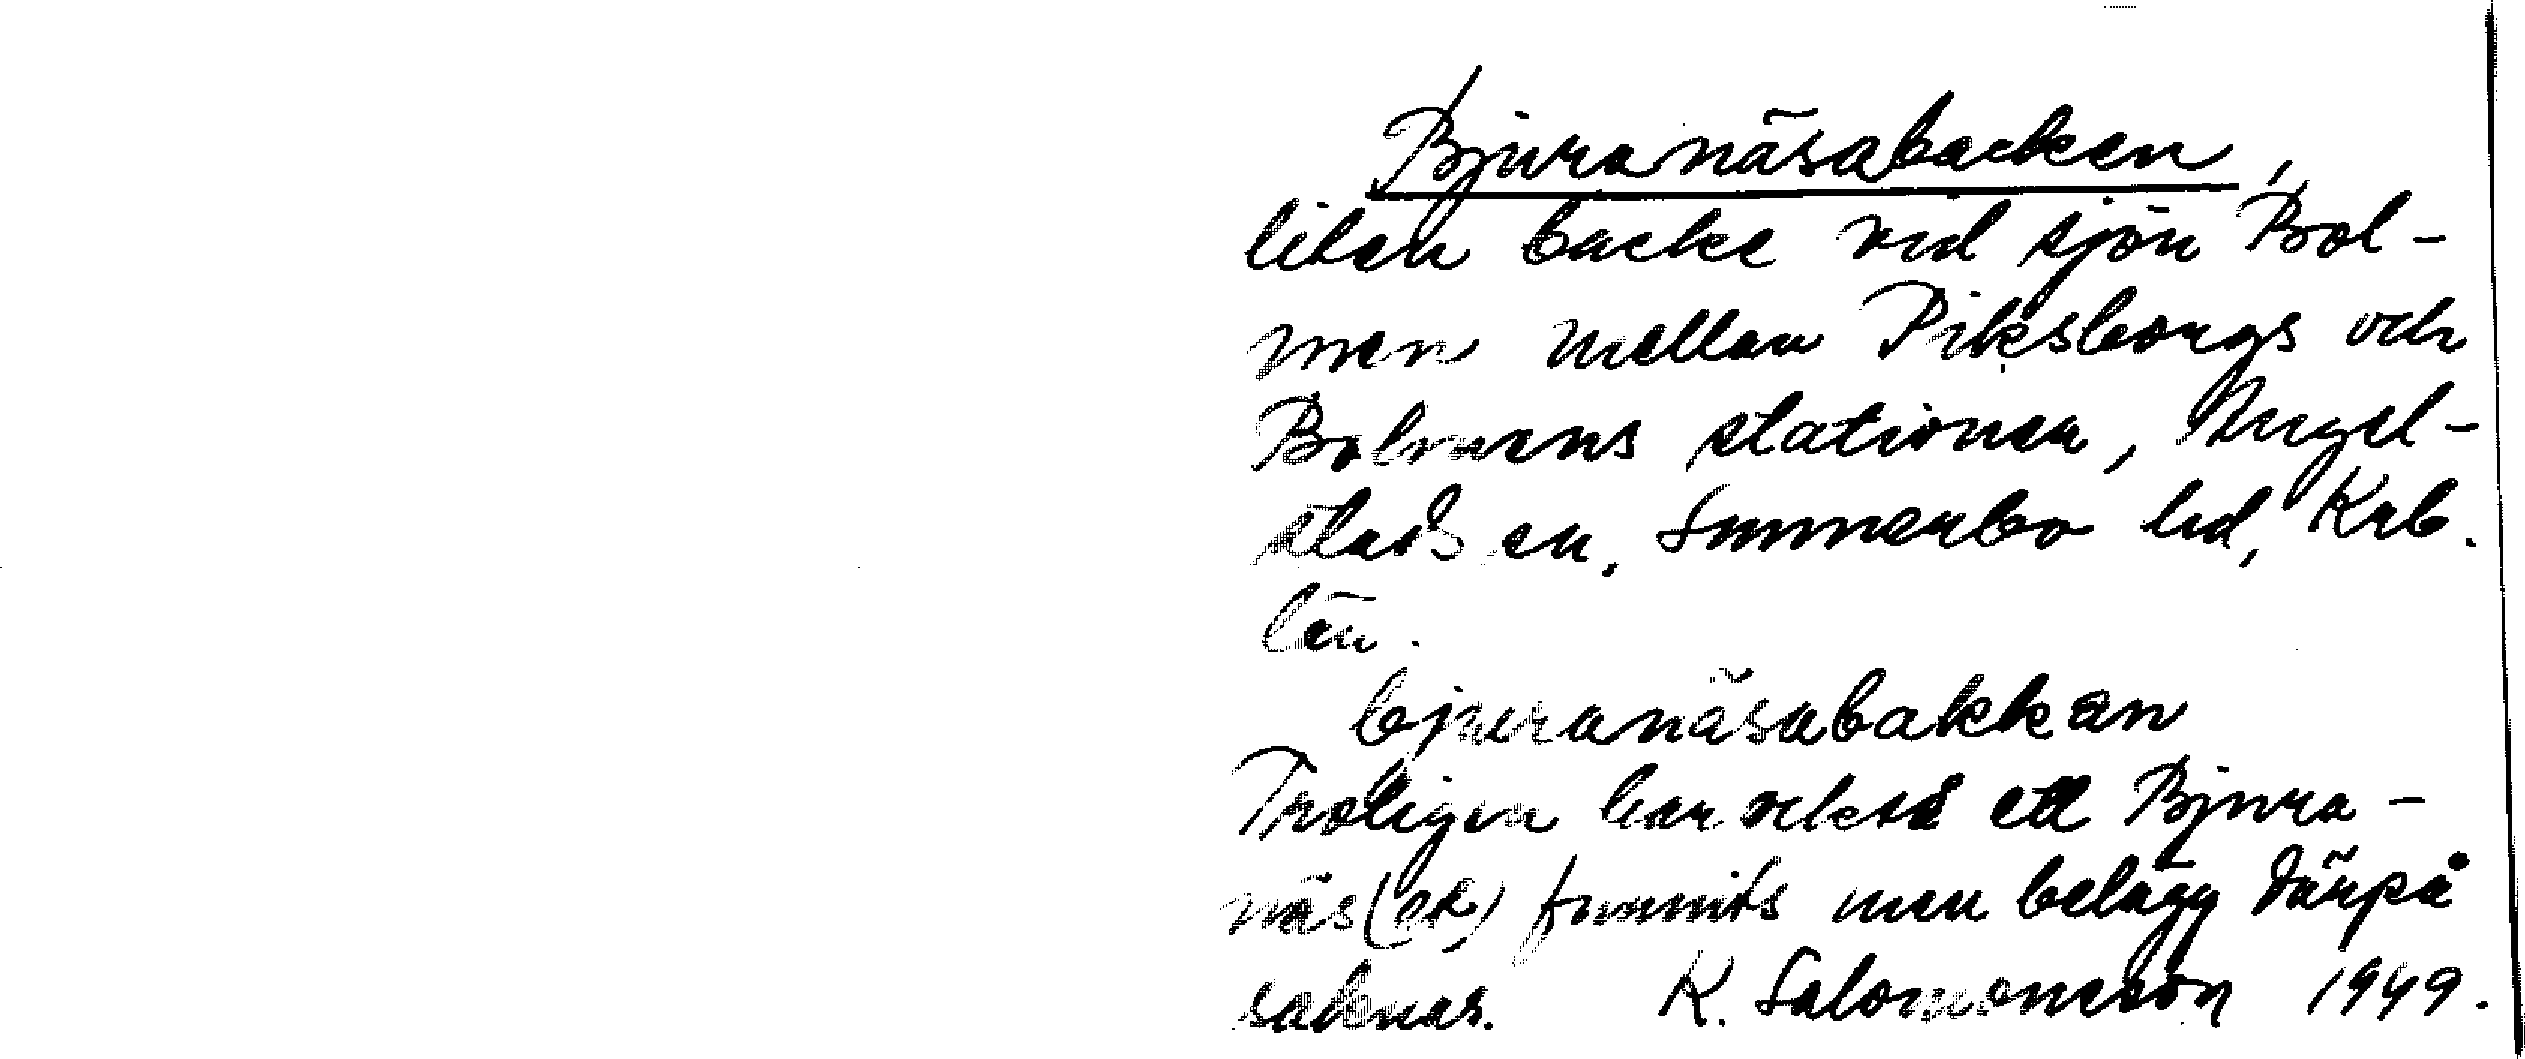 Bjuranäsabacken,
liten backe vid sjön Bol-
men mellan Piksborgs och
Bolmens stationer, Angel-
stads sn, Sunnerbo hd, Krb.
län.
bjuranäsabakkan
Troligen har också ett Bjura-
näs(et) funnits men belägg därpå
saknas. K. Salomonsson 1949.